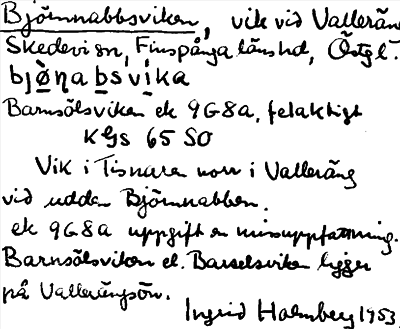 Björnnabbsviken, vik vid Valleräng
Skedevi sn, Finspånga länshd, Östgl.
bjø̀ṇabsvi̇ka
Barnsölsviken ek 9G8a, felaktigt
KGs 65 SO
Vik i Tisnaren norr i Valleräng
vid udden Björnnabben.
ek 9G8a uppgift en missuppfattning.
Barnsölsviken el. Barselsviken ligger
på Vallerängsön.
Ingrid Holmberg 1953